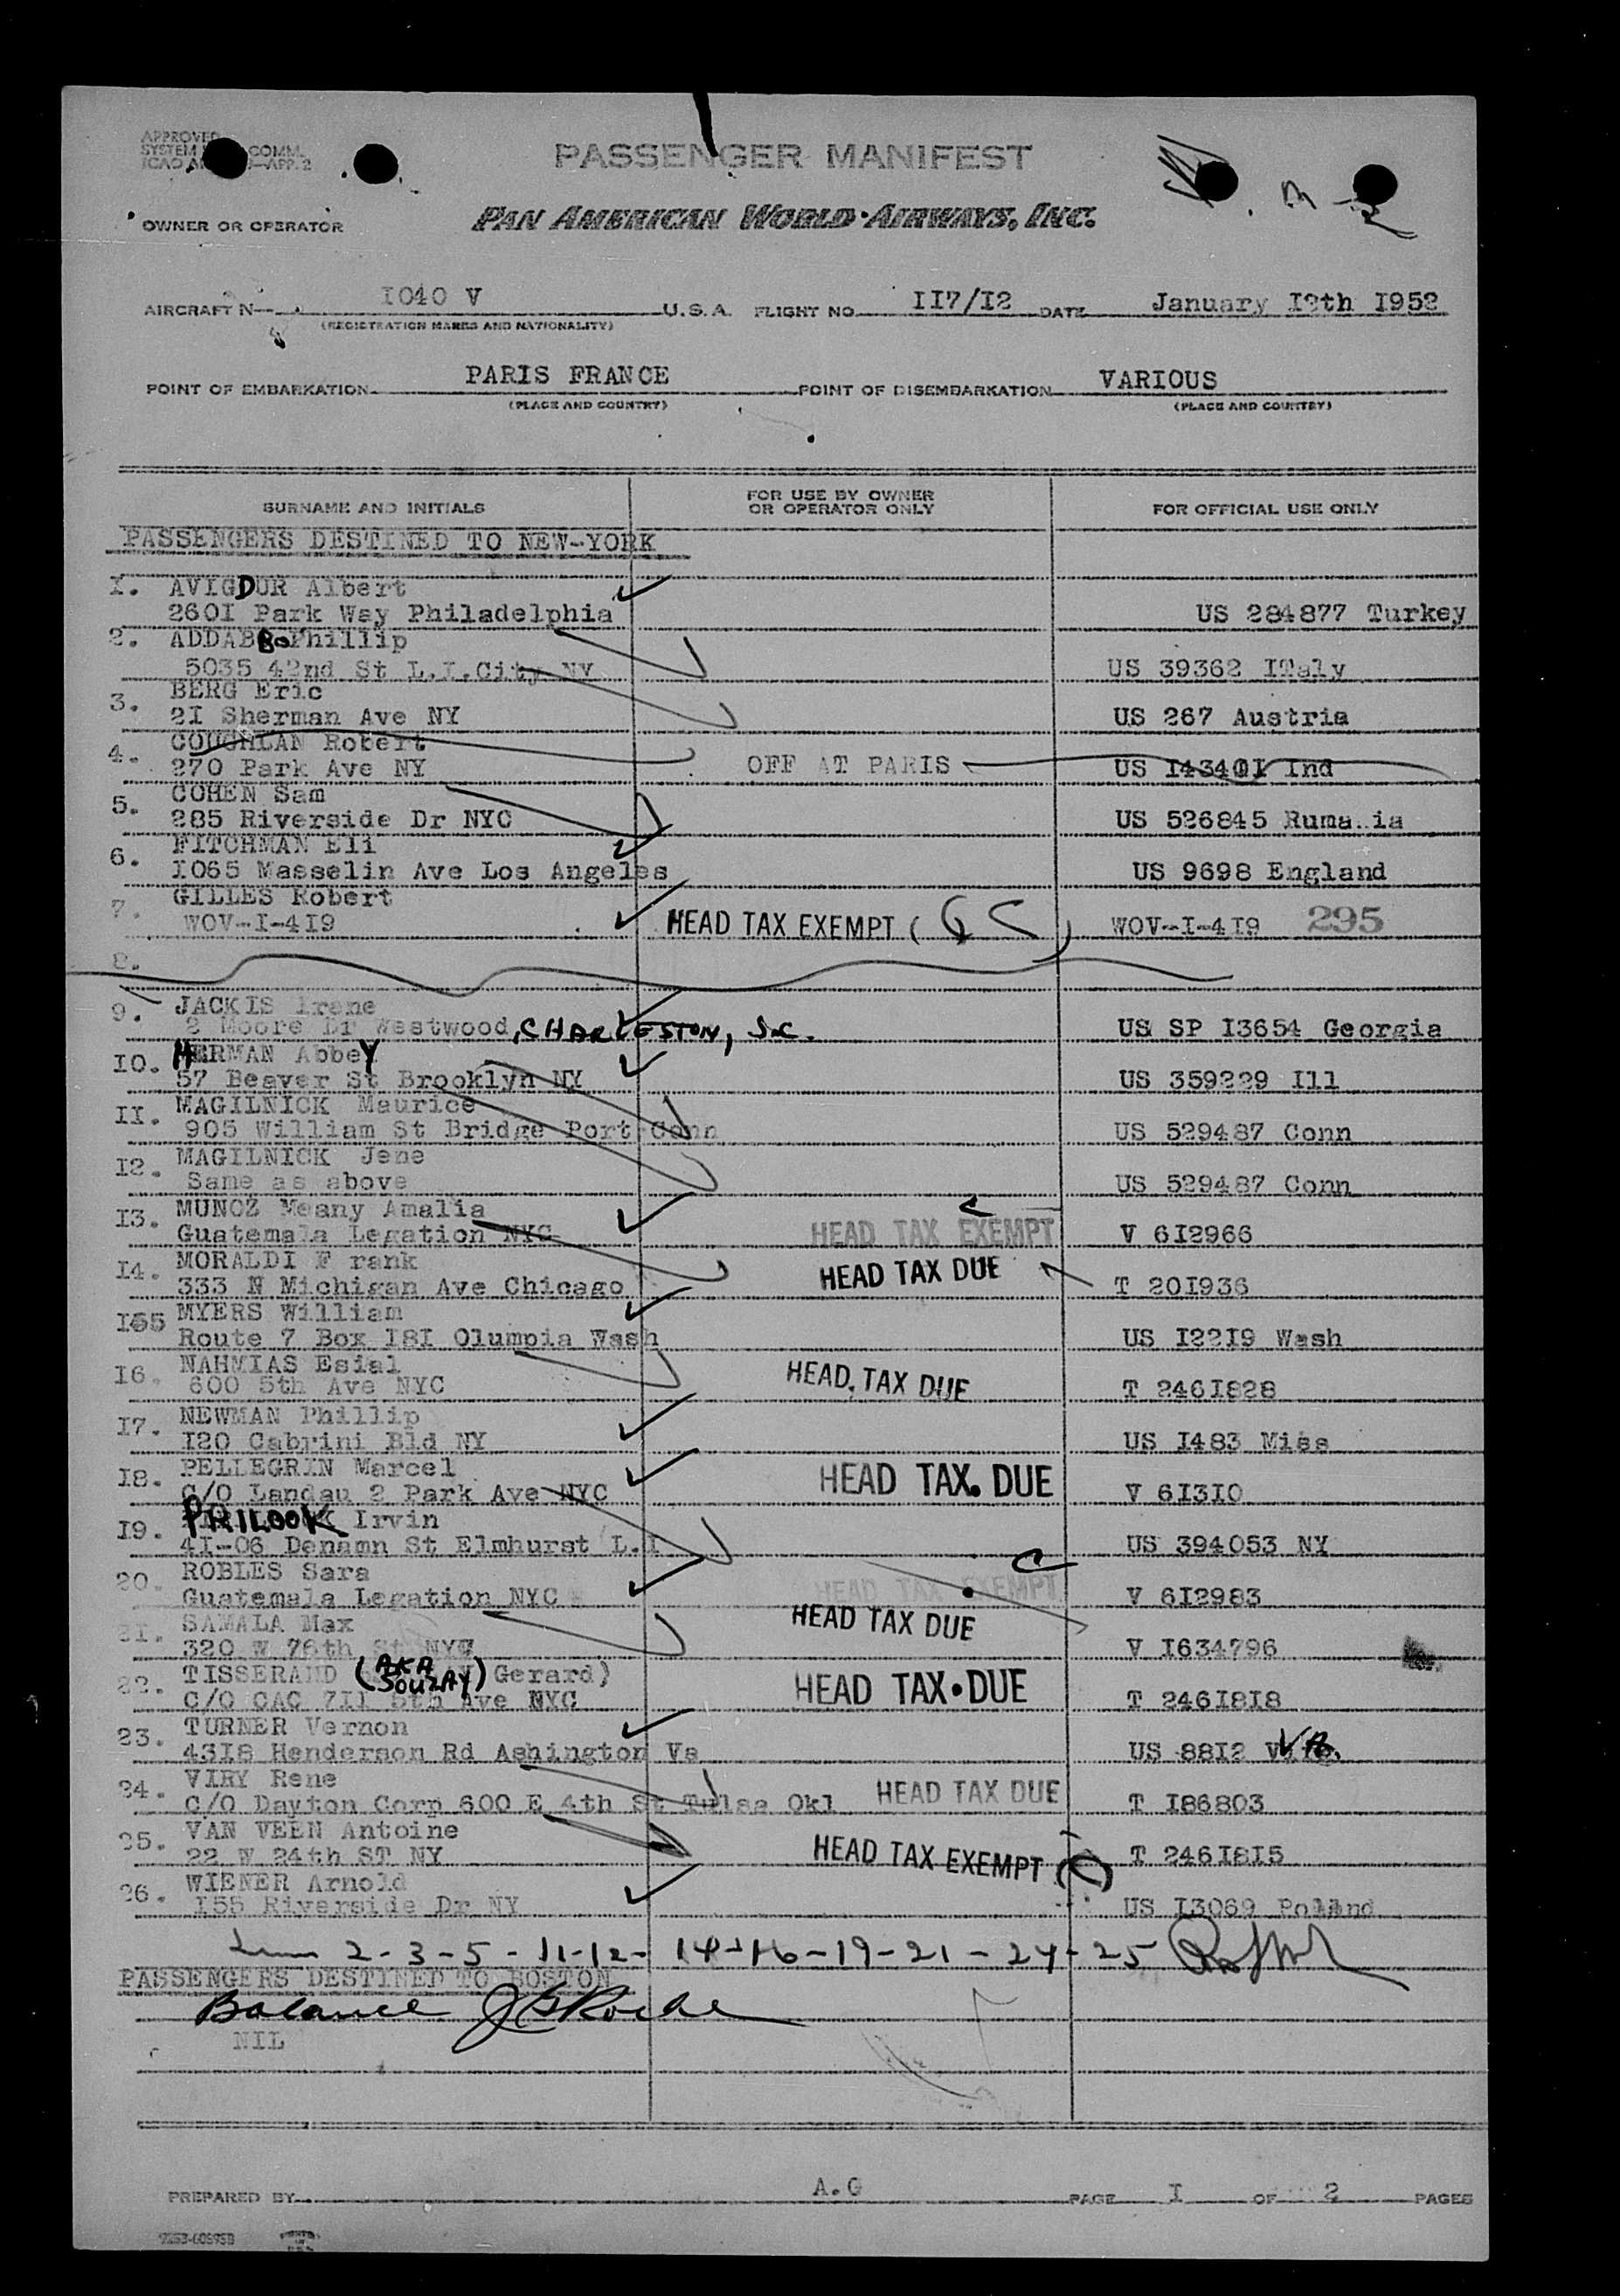 APPROVED
SYSTEM COMM.
ICAO APP. 2
PASSENGER MANIFEST
OWNER OR OPERATOR
PAN AMERICAN WORLD·AIRWAYS, INC.
AIRCRAFT N I040 V U.S.A. FLIGHT NO. II7/I2 DATE January I2th I952
(REGISTRATION MARKS AND NATIONALITY)
POINT OF EMBARKATION PARIS FRANCE POINT OF DISEMBARKATION VARIOUS
(PLACE AND COUNTRY) (PLACE AND COUNTRY)
SURNAME AND INITIALS FOR USE BY OWNER OR OPERATOR ONLY FOR OFFICIAL USE ONLY
PASSENGERS DESTINED TO NEW-YORK
I. AVIGDUR Albert
260I Park Way Philadelphia US 284877 Turkey
2. ADDABBo Phillip
5035 42nd St L.I.City NY US 39362 ITaly
3. BERG Eric
2I Sherman Ave NY US 267 Austria
4. COUGHLAN Robert
270 Park Ave NY OFF AT PARIS US I4340I Ind
5. COHEN Sam
285 Riverside Dr NYC US 526845 Ruma ia
6. FITCHMAN Eli
I065 Masselin Ave Los Angeles US 9698 England
7. GILLES Robert
WOV-I-4I9 HEAD TAX EXEMPT ( GC ) WOV-I-4I9 295
8.
9. JACKIS Irene
2 Moore Dr Westwood, CHARLESTON, S.C. US SP I3654 Georgia
I0. HERMAN AbbeY
57 Beaver St Brooklyn NY US 359229 Ill
II. MAGILNICK Maurice
905 William St Bridge Port Conn US 529487 Conn
I2. MAGILNICK Jene
Same as above US 529487 Conn
I3. MUNOZ Meany Amalia
Guatemala Legation NYC HEAD TAX EXEMPT V 6I2966
I4. MORALDI F rank
333 N Michigan Ave Chicago HEAD TAX DUE T 20I936
I55 MYERS William
Route 7 Box I8I Olumpia Wash US I22I9 Wash
I6. NAHMIAS Esial
600 5th Ave NYC HEAD TAX DUE T 246I828
I7. NEWMAN Phillip
I20 Cabrini Bld NY US I483 Miss
I8. PELLEGRIN Marcel
C/O Landau 2 Park Ave NYC HEAD TAX DUE V 6I3I0
I9. PRILOOK Irvin
4I-06 Denamn St Elmhurst L.I US 394053 NY
20. ROBLES Sara
Guatemala Legation NYC HEAD TAX EXEMPT C V 6I2983
2I. SAMALA Max HEAD TAX DUE
320 W 76th St NYC V I634796
22. TISSERAND (AKA SOUZAY) Gerard)
C/O CAC 7II 5th Ave NYC HEAD TAX DUE T 246I8I8
23. TURNER Vernon
43I8 Henderson Rd Ashington Va US 88I2 VA.
24. VIRY Rene
C/O Dayton Corp 600 E 4th St Tulsa Okl HEAD TAX DUE T I86803
25. VAN VEEN Antoine
22 W 24th ST NY HEAD TAX EXEMPT (C) T 246I8I5
26. WIENER Arnold
I55 Riverside Dr NY US I3069 Poland
2-3-5-11-12-14-16-19-21-24-25
PASSENGERS DESTINED TO BOSTON
Balance J G Roche
NIL
PREPARED BY A.G PAGE I OF 2 PAGES